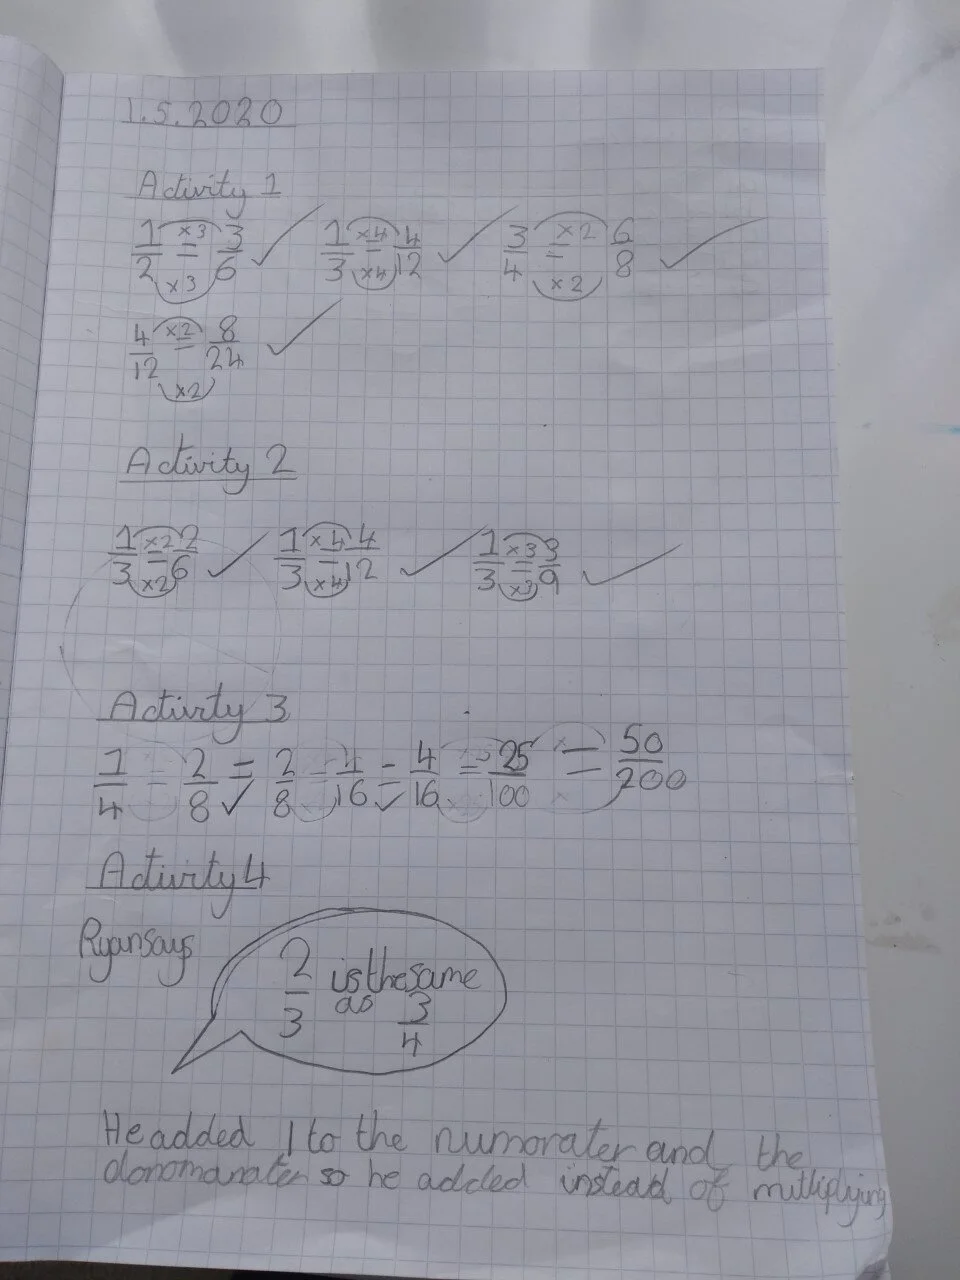 1.5.2020
Activity 1
1/2 ×3 = ×3 3/6 ✓ 1/3 ×4 = ×4 4/12 ✓ 3/4 ×2 = ×2 6/8 ✓
4/12 ×2 = ×2 8/24 ✓
Activity 2
1/3 ×2 = ×2 2/6 ✓ 1/3 ×4 = ×4 4/12 ✓ 1/3 ×3 = ×3 3/9 ✓
Activity 3
1/4 = 2/8 = 2/8 = 4/16 = 4/16 = 25/100 = 50/200
Activity 4
Ryan says
2/3 is the same
as 3/4
He added 1 to the numorater and the
donomanater so he added instead of multiplying